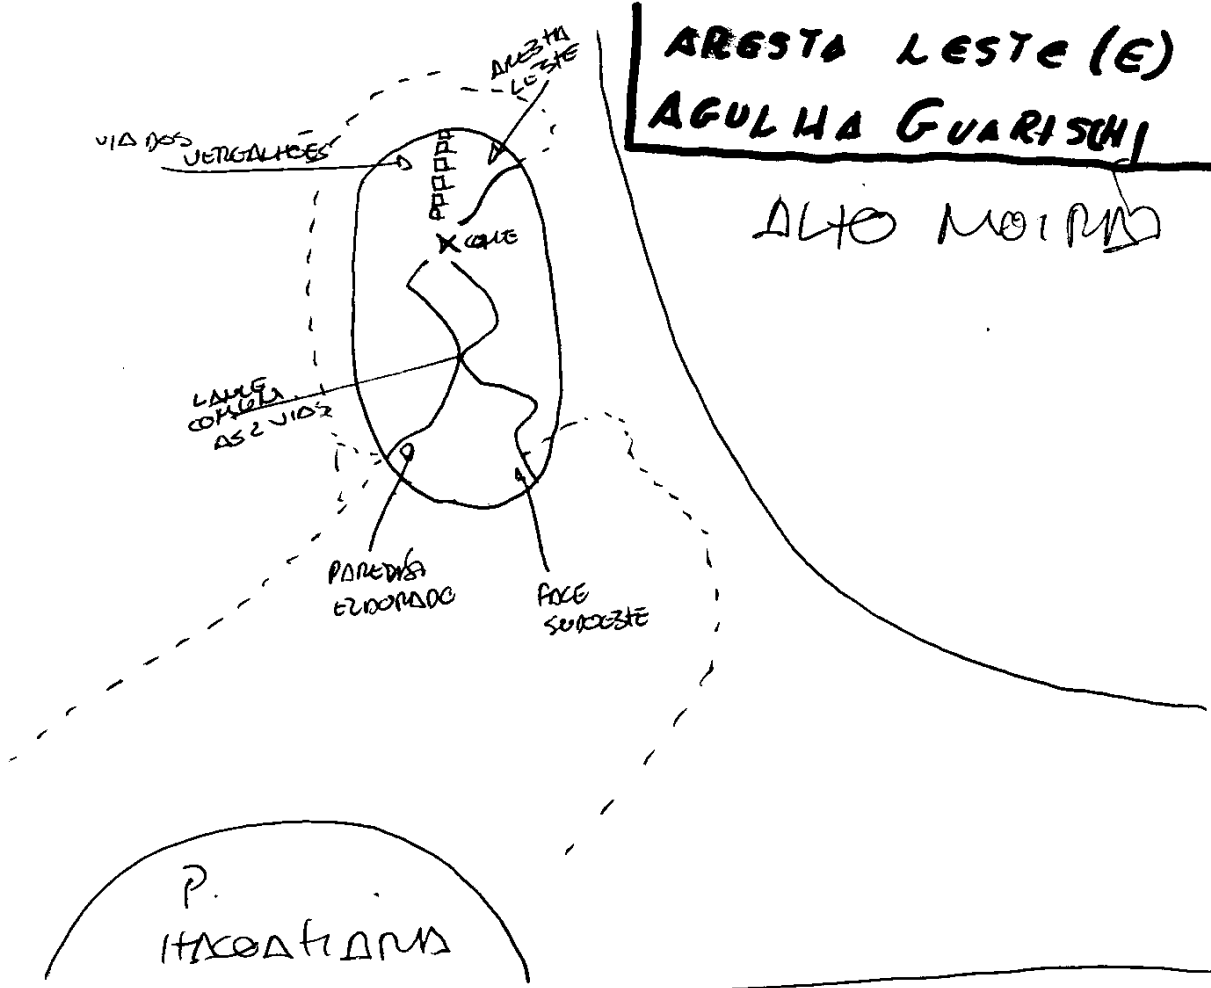 ARESTA LESTE (E)
AGULHA GUARISCHI
ALTO MOIRÃO
ARESTA
LESTE
VIA DOS
VERGALHÕES
X CUME
LANCE
COMUM
AS 2 VIAS
PAREDÃO
ELDORADO
FACE
SUDOESTE
P.
ITACOATIARA